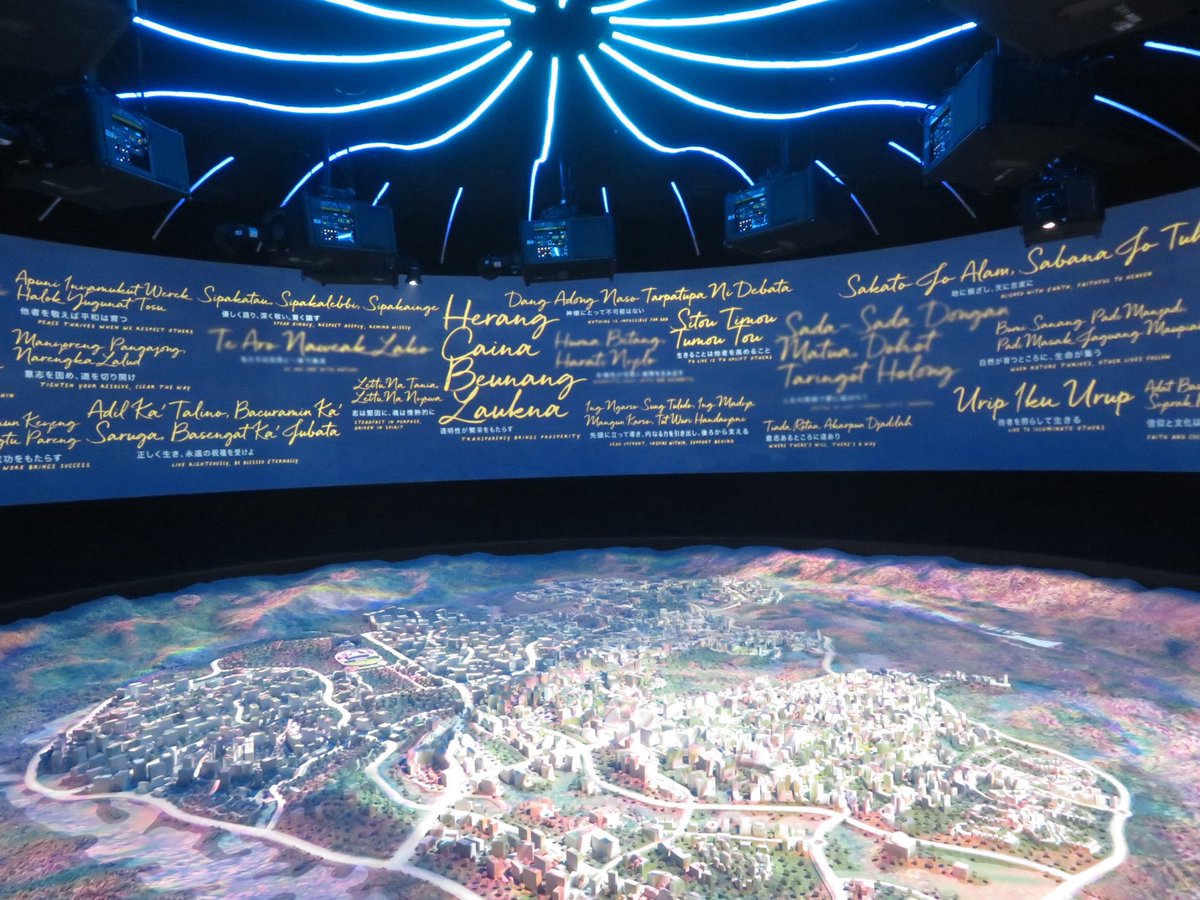 Apuni Inyamukut Werek
Halok Yugunat Tosu
他者を敬えば平和は育つ
PEACE THRIVES WHEN WE RESPECT OTHERS
Narengka Lalud
意志を固め、道を切り開け
TIGHTEN YOUR RESOLVE, CLEAR THE WAY
WORK BRINGS SUCCESS
Sipakatau, Sipakalebbi, Sipakainge
優しく語り、深く敬い、賢く諭す
SPEAK KINDLY, RESPECT DEEPLY, REMIND WISELY
Te Aro Naweak Lako
Adil Ka' Talino, Bacuramin Ka'
Saruga, Basengat Ka' Jubata
正しく生き、永遠の祝福を受けよ
LIVE RIGHTEOUSLY, BE BLESSED ETERNALLY
Lettu Na Tania,
Lettu Na Nyawa
志は堅固に、魂は情熱的に
STEADFAST IN PURPOSE,
DRIVEN IN SPIRIT
Herang
Caina
Beunang
Laukna
透明性が繁栄をもたらす
TRANSPARENCY BRINGS PROSPERITY
Dang Adong Naso Tarpatupa Ni Debata
神様にとって不可能はない
NOTHING IS IMPOSSIBLE FOR GOD
Huma Betang
Sitou Timou
Tumou Tou
生きることは他者を高めること
TO LIVE IS TO UPLIFT OTHERS
Ing Ngarso Sung Tulodo, Ing Madya
Mangun Karso, Tut Wuri Handayani
先頭に立って導き、内なる力を引き出し、後ろから支える
LEAD UPFRONT, INSPIRE WITHIN, SUPPORT BEHIND
Sada-Sada Dongan
Matua, Dohot
Taringot Holong
Tiada Rotan, Akarpun Djadilah
意志あるところに道あり
WHERE THERE'S WILL, THERE'S A WAY
Sakato Jo Alam, Sabana Jo Tuh
地に根ざし、天に忠実に
ALIGNED WITH EARTH, FAITHFUL TO HEAVEN
Bumi Sanang Padi Manjadi
Padi Masak Jaguang Maupia
自然が育つところに、生命が集う
WHEN NATURE THRIVES, OTHER LIVES FOLLOW
Urip Iku Urup
他者を照らして生きる
LIVE TO ILLUMINATE OTHERS
Adat Ba
信仰と文化は
FAITH AND CU